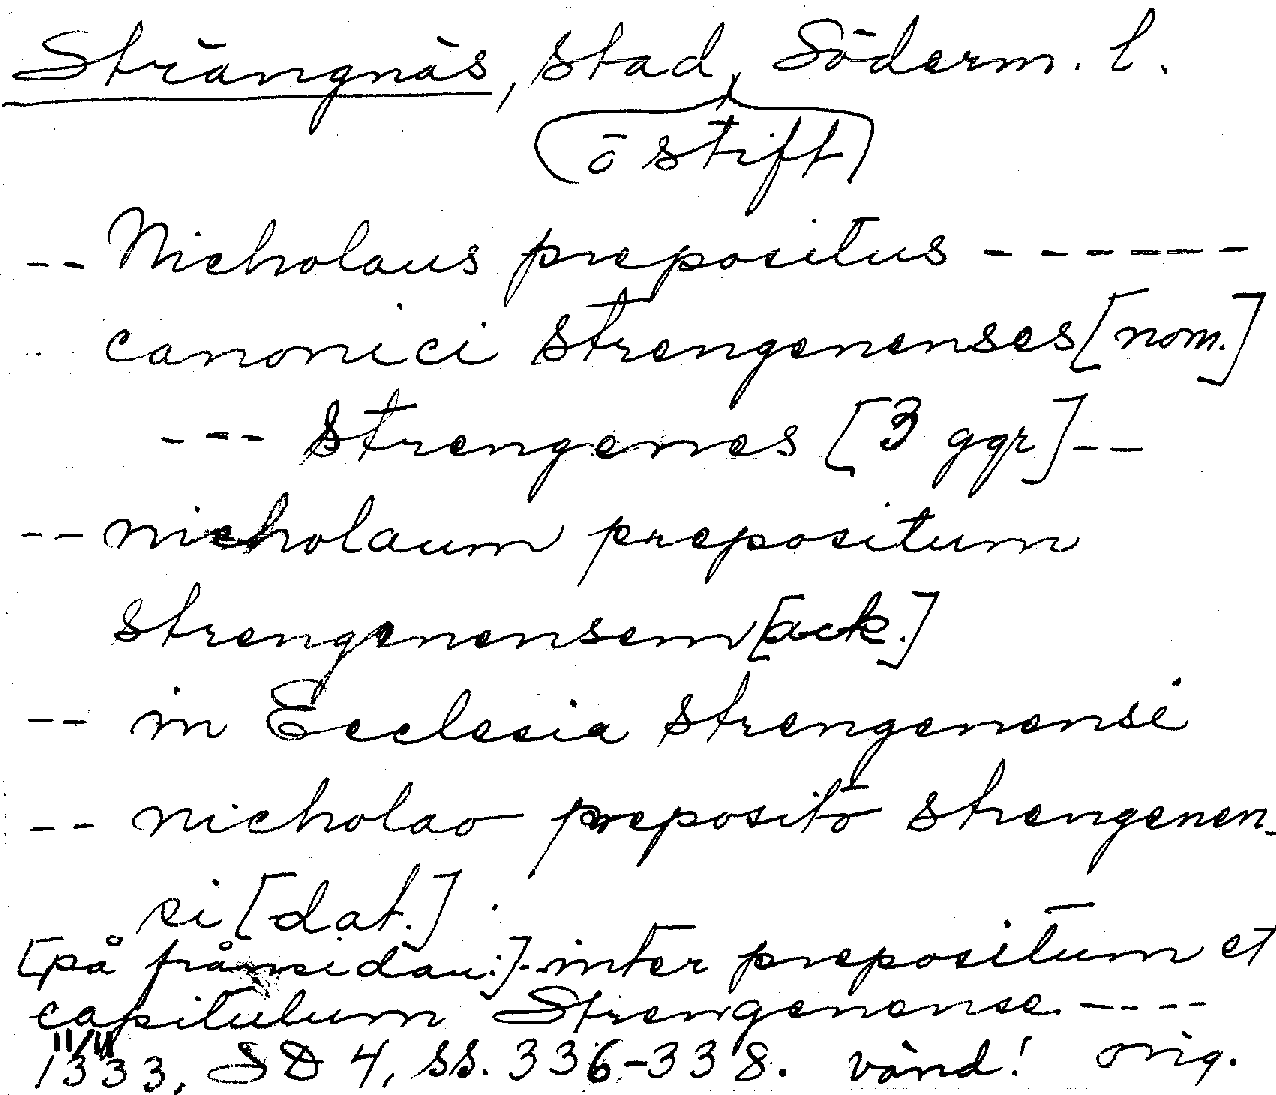 Strängnäs, stad, Söderm. l.
(ö stift)
-- Nicholaus prepositus ------
canonici strengenenses [nom.]
--- Strengenes [3 ggr] --
-- nicholaum prepositum
strengenensem [ack.]
-- in Ecclesia strengenensi
-- nicholao preposito strengenen-
si [dat.].
[på frånsidan:]-- inter prepositum et
capitulum Strengenense. ----
1333, SD 4, ss. 336-338. vänd! orig.